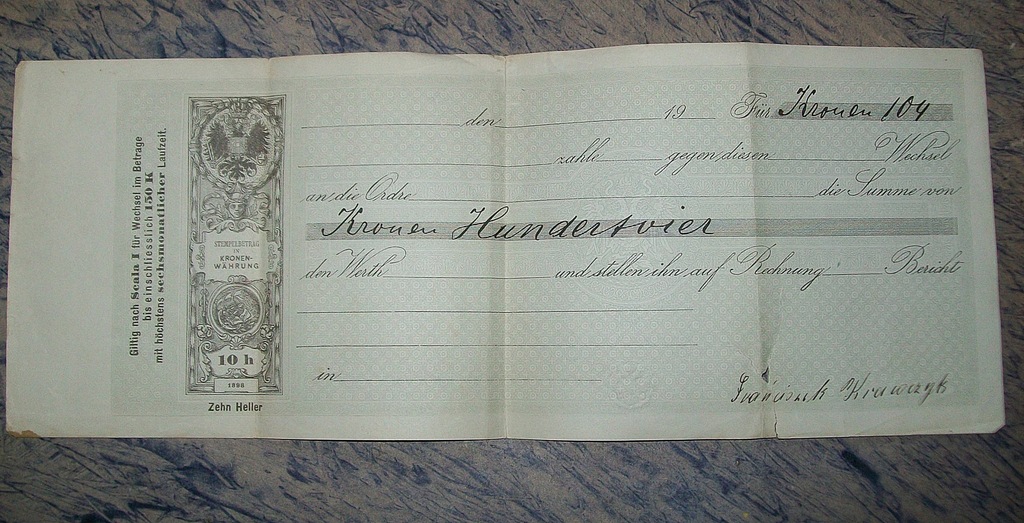 Giltig nach Scala I für Wechsel im Betrage
bis einschliesslich 150 K
mit höchstens sechsmonatlicher Laufzeit.
STEMPELBETRAG
IN
KRONEN-
WÄHRUNG
10 h
1898
Zehn Heller
den 19 Für Kronen 104
zahle gegen diesen Wechsel
an die Ordre die Summe von
Kronen Hundertvier
den Werth und stellen ihn auf Rechnung Bericht
in
Franciszek Krawczyk